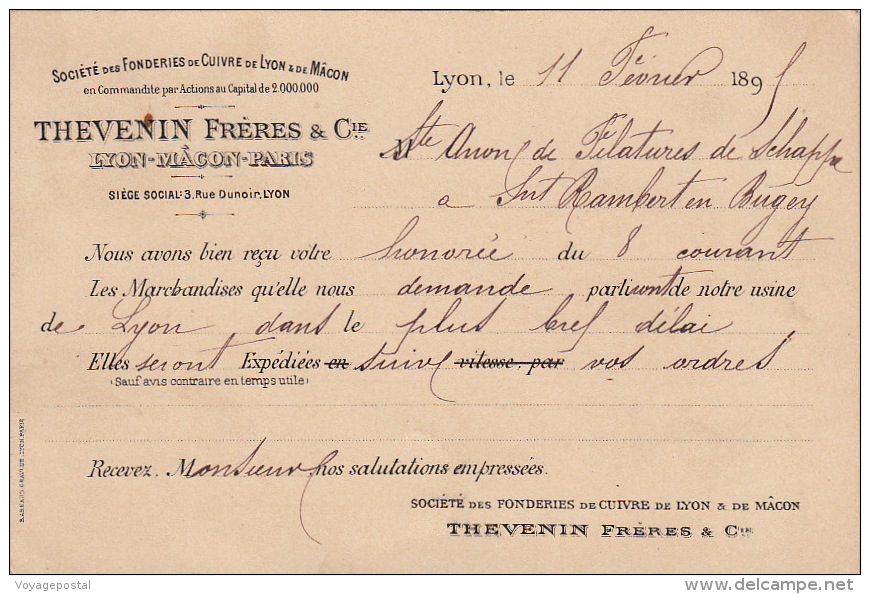 SOCIÉTÉ DES FONDERIES DE CUIVRE DE LYON & DE MÂCON
en Commandite par Actions au Capital de 2.000.000
THEVENIN FRÈRES & CIE
LYON-MÂCON-PARIS
SIÈGE SOCIAL: 3, RUE DUNOIR, LYON
Lyon, le 11 Février 1895
M Ste Anon de Filatures de Schappe
a Snt Rambert en Bugey
Nous avons bien reçu vôtre honorée du 8 courant
Les Marchandises qu'elle nous demande partiront de notre usine
de Lyon dans le plus bref délai
Elles seront Expédiées en suiv vitesse, par vos ordres
(Sauf avis contraire en temps utile)
Recevez, Monsieur, nos salutations empressées.
SOCIÉTÉ DES FONDERIES DE CUIVRE DE LYON & DE MÂCON
THEVENIN FRÈRES & CIE
Voyagepostal
delcampe.net